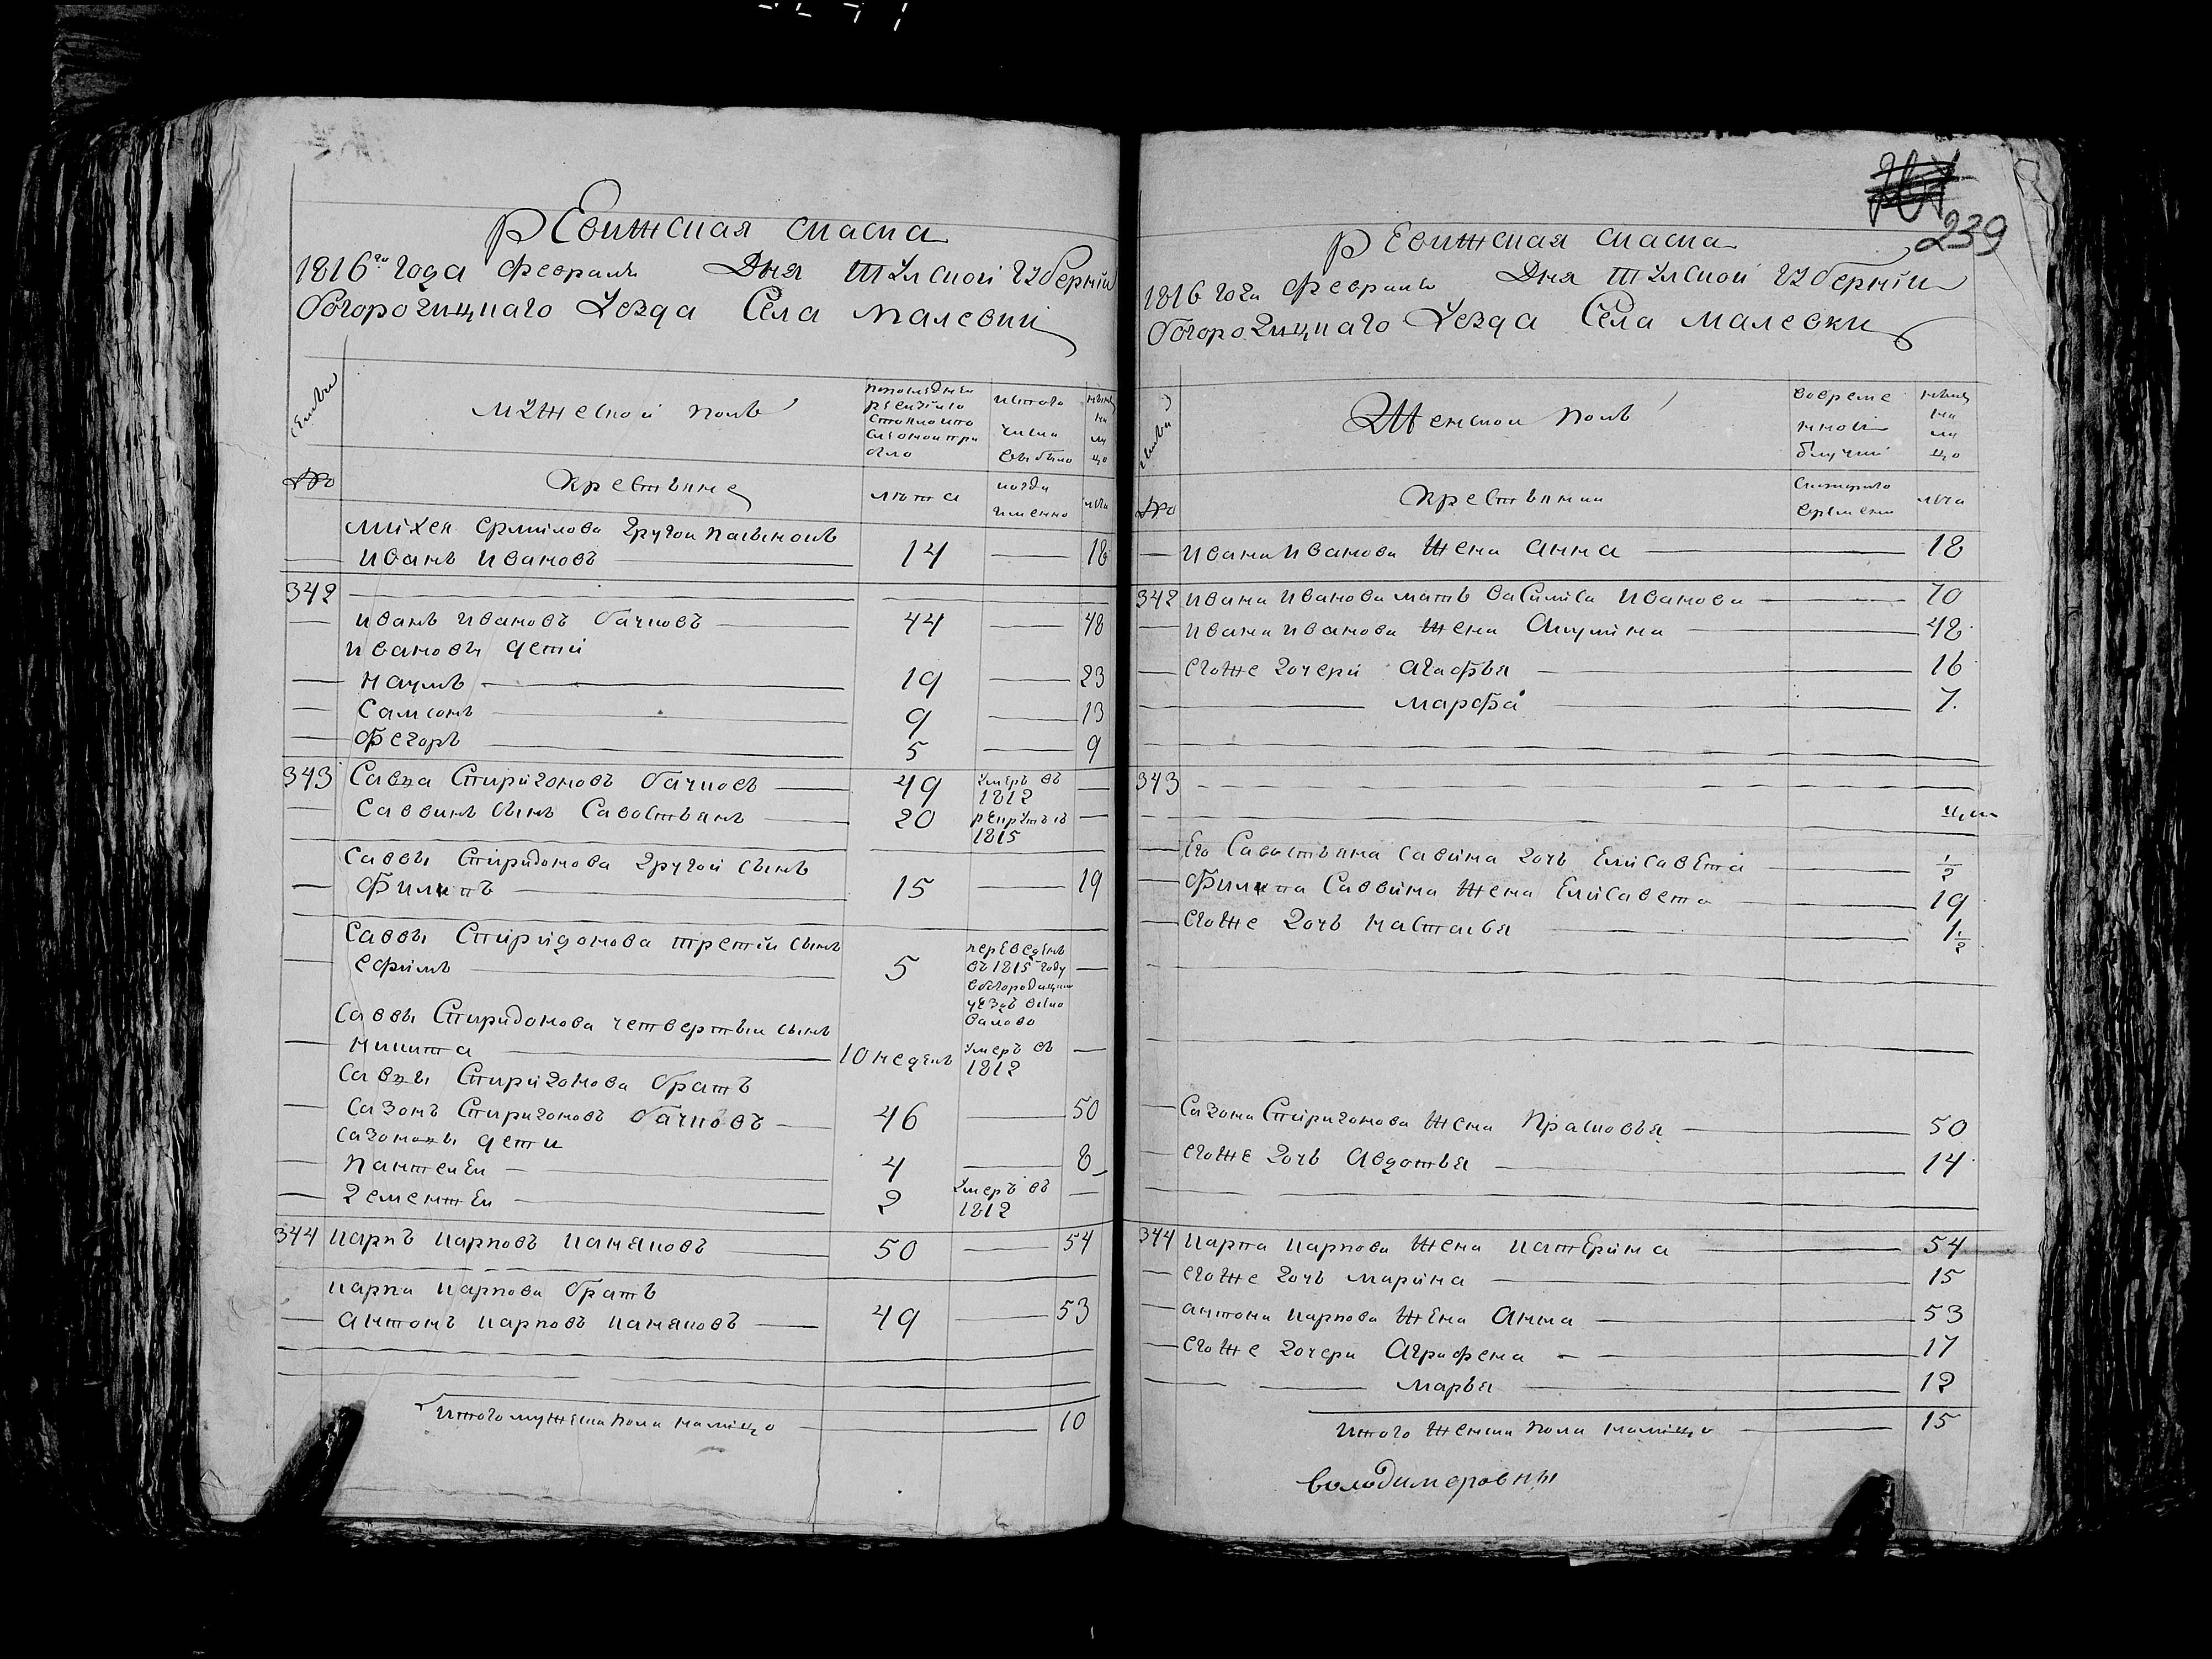 ревижская скаска
1816го года февраля Дня тулской губернїи
богородицкаго уезда Села малевки
Семьи
мужеской полъ
По последней ревизїи состояло и по оной прибыло
исъ того числа выбыло
ныне на лицо
№
крестьяне
лѣта
когда именно
лѣта
михея ермилова другой пасынокъ
иванъ ивановъ 14 18
342
иванъ ивановъ бачковъ 44 48
ивановы дети
наумъ 19 23
Самсонъ 9 13
федоръ 5 9
343 Савва Спиридоновъ бачковъ 49 умеръ въ 1812
Саввинъ сынъ Савостьянъ 20 рекрутъ въ 1815
Саввы Спиридонова другой сынъ
филипъ 15 19
Саввы Спиридонова третїй сынъ
ефимъ 5 переведенъ въ 1815 году в богородицкой уездъ
Саввы Спиридонова четвертый сынъ
никита 10 недель умеръ въ 1812
Саввы Спиридонова братъ
Сазонъ Спиридоновъ бачковъ 46 50
Сазоновы дети
пантелей 4 8
дементей 2 умеръ въ 1812
344 карпъ карповъ каняковъ 50 54
карпа карпова братъ
антонъ карповъ каняковъ 49 53
Итого мужеска пола налицо 10
239
ревижская скаска
1816 года февраля Дня тулской губернїи
богородицкаго уезда Села малевки
Семьи
Женской полъ
во временной отлучки
ныне на лицо
№
крестьянки
С котораго времени
лѣта
ивана иванова жена анна 18
342 ивана иванова мать василиса иванова 70
ивана иванова жена Акулина 48
его же дочери агафья 16
марфа 7
343
Его Савостьяна савина дочь Елисавета ½
филипа Саввина жена Елисавета 19
его же дочь настасья 1½
Сазона Спиридонова жена Прасковья 50
его же дочь Авдотья 14
344 карпа карпова жена катерина 54
его же дочь марина 15
антона карпова жена анна 53
его же дочери Аграфена 17
марья 12
Итого женска пола налицо 15
володимеровны